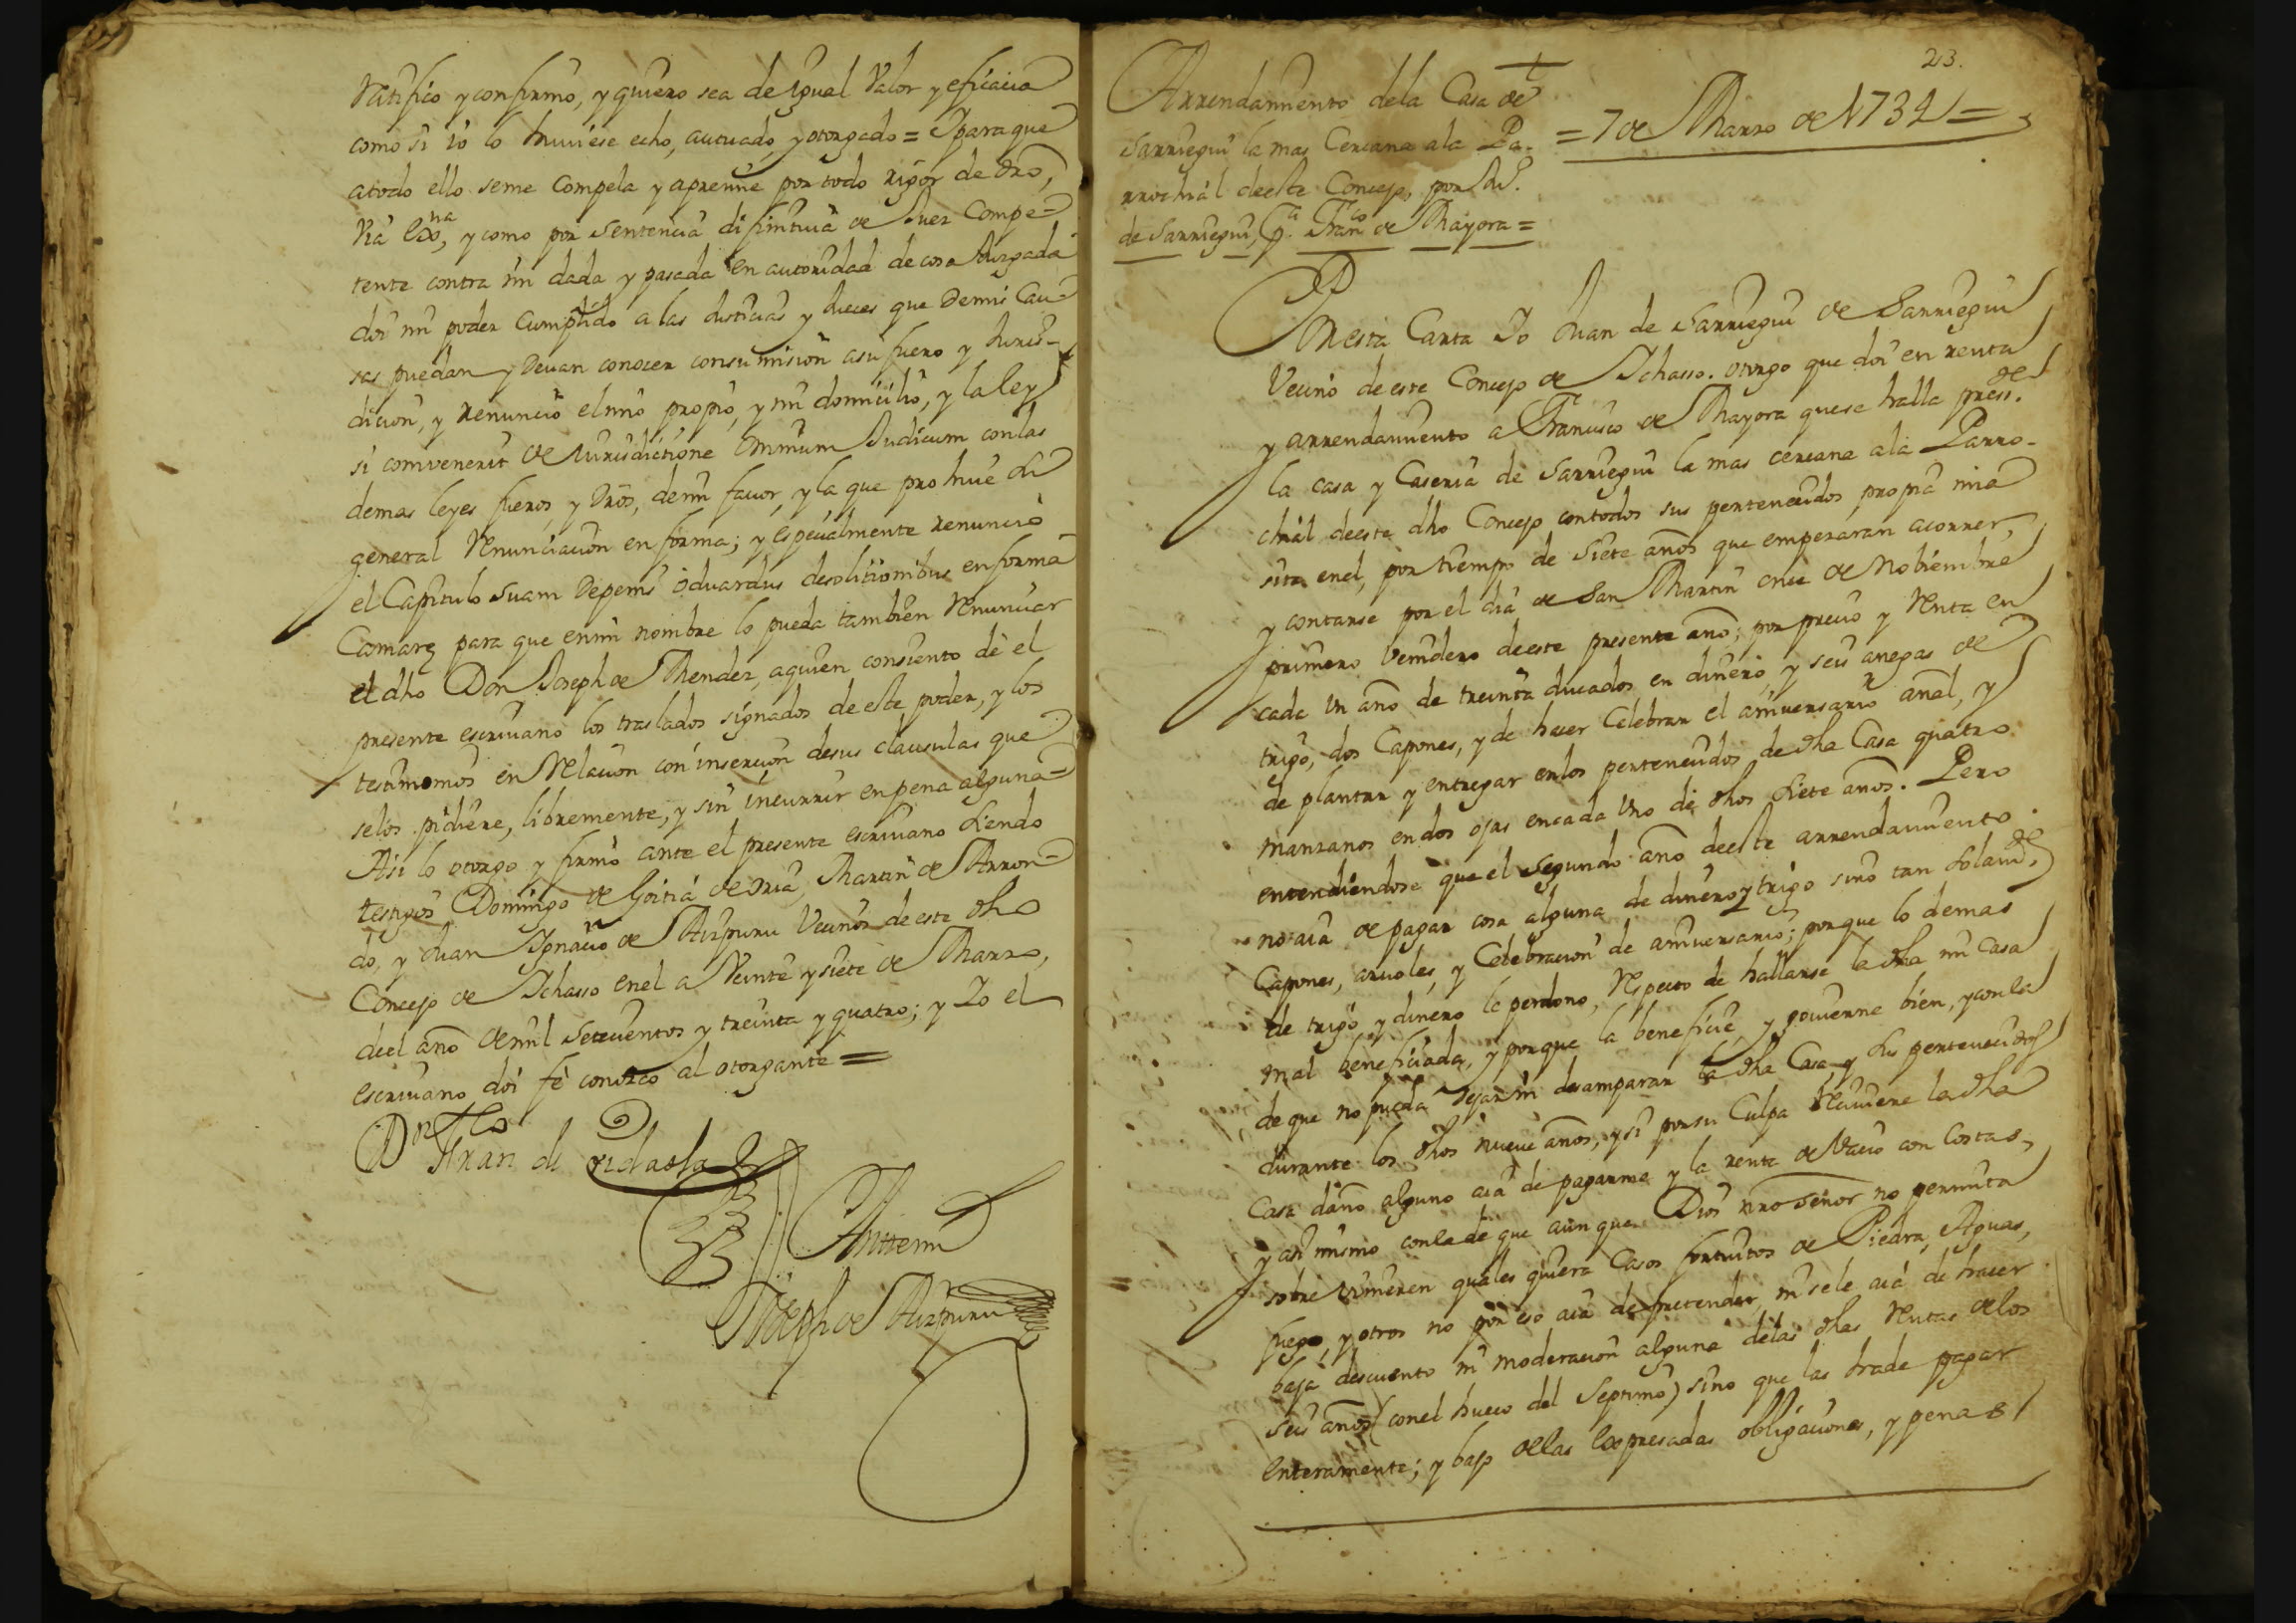 Ratifico y confirmo, y quiero sea de igual Valor y eficacia
como si io lo huviese echo, autuado, y otorgado = Y para que
atodo ello seme Compela y apremie por todo rigor de dro,
Via exva, y como por Sentencia difinitiva de Juez Compe=
tente contra mi dada y pasada en autoridad de cosa Juzgada
doi mi poder Cumplido a las Justicias y Jueces que demis Cau=
sas puedan y devan conocer consumision asu fuero y Juris-
dicion, y renuncio elmio propio, y mi domicilio, y la ley
si convenerit de Jurisdictione Omnium Judicum conlas
demas leyes fueros, y dros, demi favor, y la que prohive la
general Renunciacion en forma; y especialmente renuncio
el Capitulo Suam de penis Oduardus desolutionibus enforma
Camare para que enmi nombre lo pueda tambien Renunciar
el dho Don Joseph de Mendez, aquien consiento dè el
presente escrivano los traslados signados de este poder, y los
testimonios en Relacion con insercion desus clausulas que
selos pidiere, libremente, y sin incurrir en pena alguna=
Asi lo otorgo y firmò ante el presente escrivano siendo
testigos Domingo de Goitia de Oria, Martin de Arron=
do, y Juan Ignacio de Aizpuru Vecinos de este dho
Concejo de Ichasso enel a Veinte y siete de Marzo,
deel año de mil setecientos y treinta y quatro; y Yo el
escrivano doi fè conozco al otorgante =
Juan de
Antemi
Joseph de Aizpuru
23.
Arrendamiento dela Casa de
Sarriegui la mas Cercana ala Pa-
rrochial deeste Concejo, por Jn.
de Sarriegui, Pa. Franco de Mayora =
= 7 de Marzo de 1734 =
En esta Carta Yo Juan de Sarriegui de Sarriegui
Vecino de este Concejo de Ichasso. otorgo que doi en renta
y arrendamiento a Francisco de Mayora quese halla presste.
la casa y Caseria de Sarriegui la mas cercana ala Parro-
chial deeste dho Concejo contodos sus pertenecidos propia mia
sita enel, por tiempo de siete años que empezaran acorrer
y contarse por el dia de San Martin once de Nobiembre
primero Venidero deeste presente año; por precio y Renta en
cada un año de treinta ducados en dinero, y seis anegas de
trigo, dos Capones, y de hacer Celebrar el aniversario anal, y
de plantar y entregar enlos pertenecidos de dha Casa quatro
manzanos en dos ojas encada Uno de dhos siete años. Pero
entendiendose que el segundo año deeste arrendamiento
no aia de pagar cosa alguna de dinero y trigo sino tan solamte.
Capones, arvoles, y Celebracion de aniversario; porque lo demas
de trigo y dinero le perdono, Respecto de hallarse la dha mi Casa
mal beneficiada, y porque la beneficie, y govierne bien, y conla
de que no pueda dejar ni desamparar la dha Casa, y sus pertenecidos
durante los dhos nueve años, y si por su Culpa Reciviere la dha
Casa daño alguno aia de pagarme y la renta de Vacio con Costas,
y asi mismo conla de que aunque Dios nro señor no permita
sobre vinieren quales quiera Casos fortuitos de Piedra, Aguas,
fuego, y otros no por eso aia de pretender, ni sele aia de hacer
baja descuento ni moderacion alguna delas dhas Rentas delos
seis años (conel hueco del Septimo) sino que las hade pagar
enteramente; y bajo dellas expresadas obligaciones, y penas